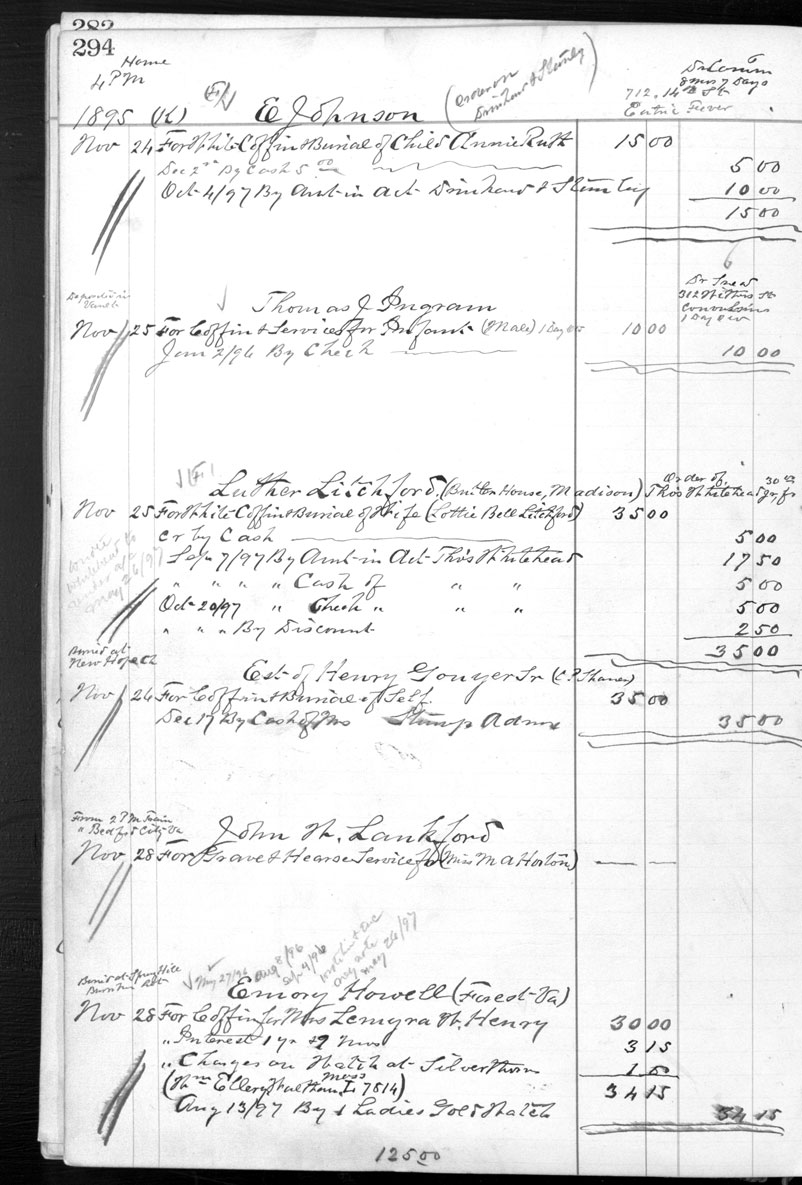 282
294
Home
4 PM
(Order on
Drinkard & Stanley)
Dr Conum
8 mos 7 Days
712. 14th St
Enteric Fever
1895 (K) E Johnson
Nov 24 For White Coffin & Burial of Child Annie Ruth 15 00
Dec 2nd By Cash 5 00 5 00
Oct 4/97 By Amt in Act Drinkard & Stanley 10 00
15 00
Deposited in
Vault
Dr Snead
312 Withers St
Convulsions
1 Day Old
Thomas J Ingram
Nov 25 For Coffin & Services for Infant (Male) 1 Day Old 10 00
Jan 2/96 By Check 10 00
Luther Litchford. (Burton House, Madison) Order of
Thos Whitehead Jr, fr 30 00
Nov 25 For White Coffin & Burial of Wife (Lottie Bell Litchford) 35 00
Cr by Cash 5 00
Sep 7/97 By Amt in Act Thos Whitehead 17 50
" " " " Cash of " " 5 00
Oct 20/97 " Check " " " 5 00
" " " By Discount 2 50
35 00
Wrote
Whitehead to
render a/c
May 26/97
Buried at
New Hope Ch
Est of Henry Gouyer Sr (C. P. Shaner)
Nov 26 For Coffin & Burial of Self. 35 00
Dec 17 By Cash of Mrs Stump Admx 35 00
From 2 PM Train
" Bedford City Va
John W. Lankford
Nov 28 For Grave & Hearse Service for (Miss M A Horton) — —
May 27/96
Aug 8/96
Sep 4/96
May 26/97
Buried at Spring Hill
Emory Howell (Forest Va)
Nov 28 For Coffin for Mrs Lemyra W. Henry 30 00
" Interest 1 yr & 9 mos 3 15
" Charges on Watch at Silverthorn 1 00
(Wm Ellery, Waltham, Mass 7814) 34 15
Aug 13/97 By 1 Ladies Gold Watch 34 15
125 00